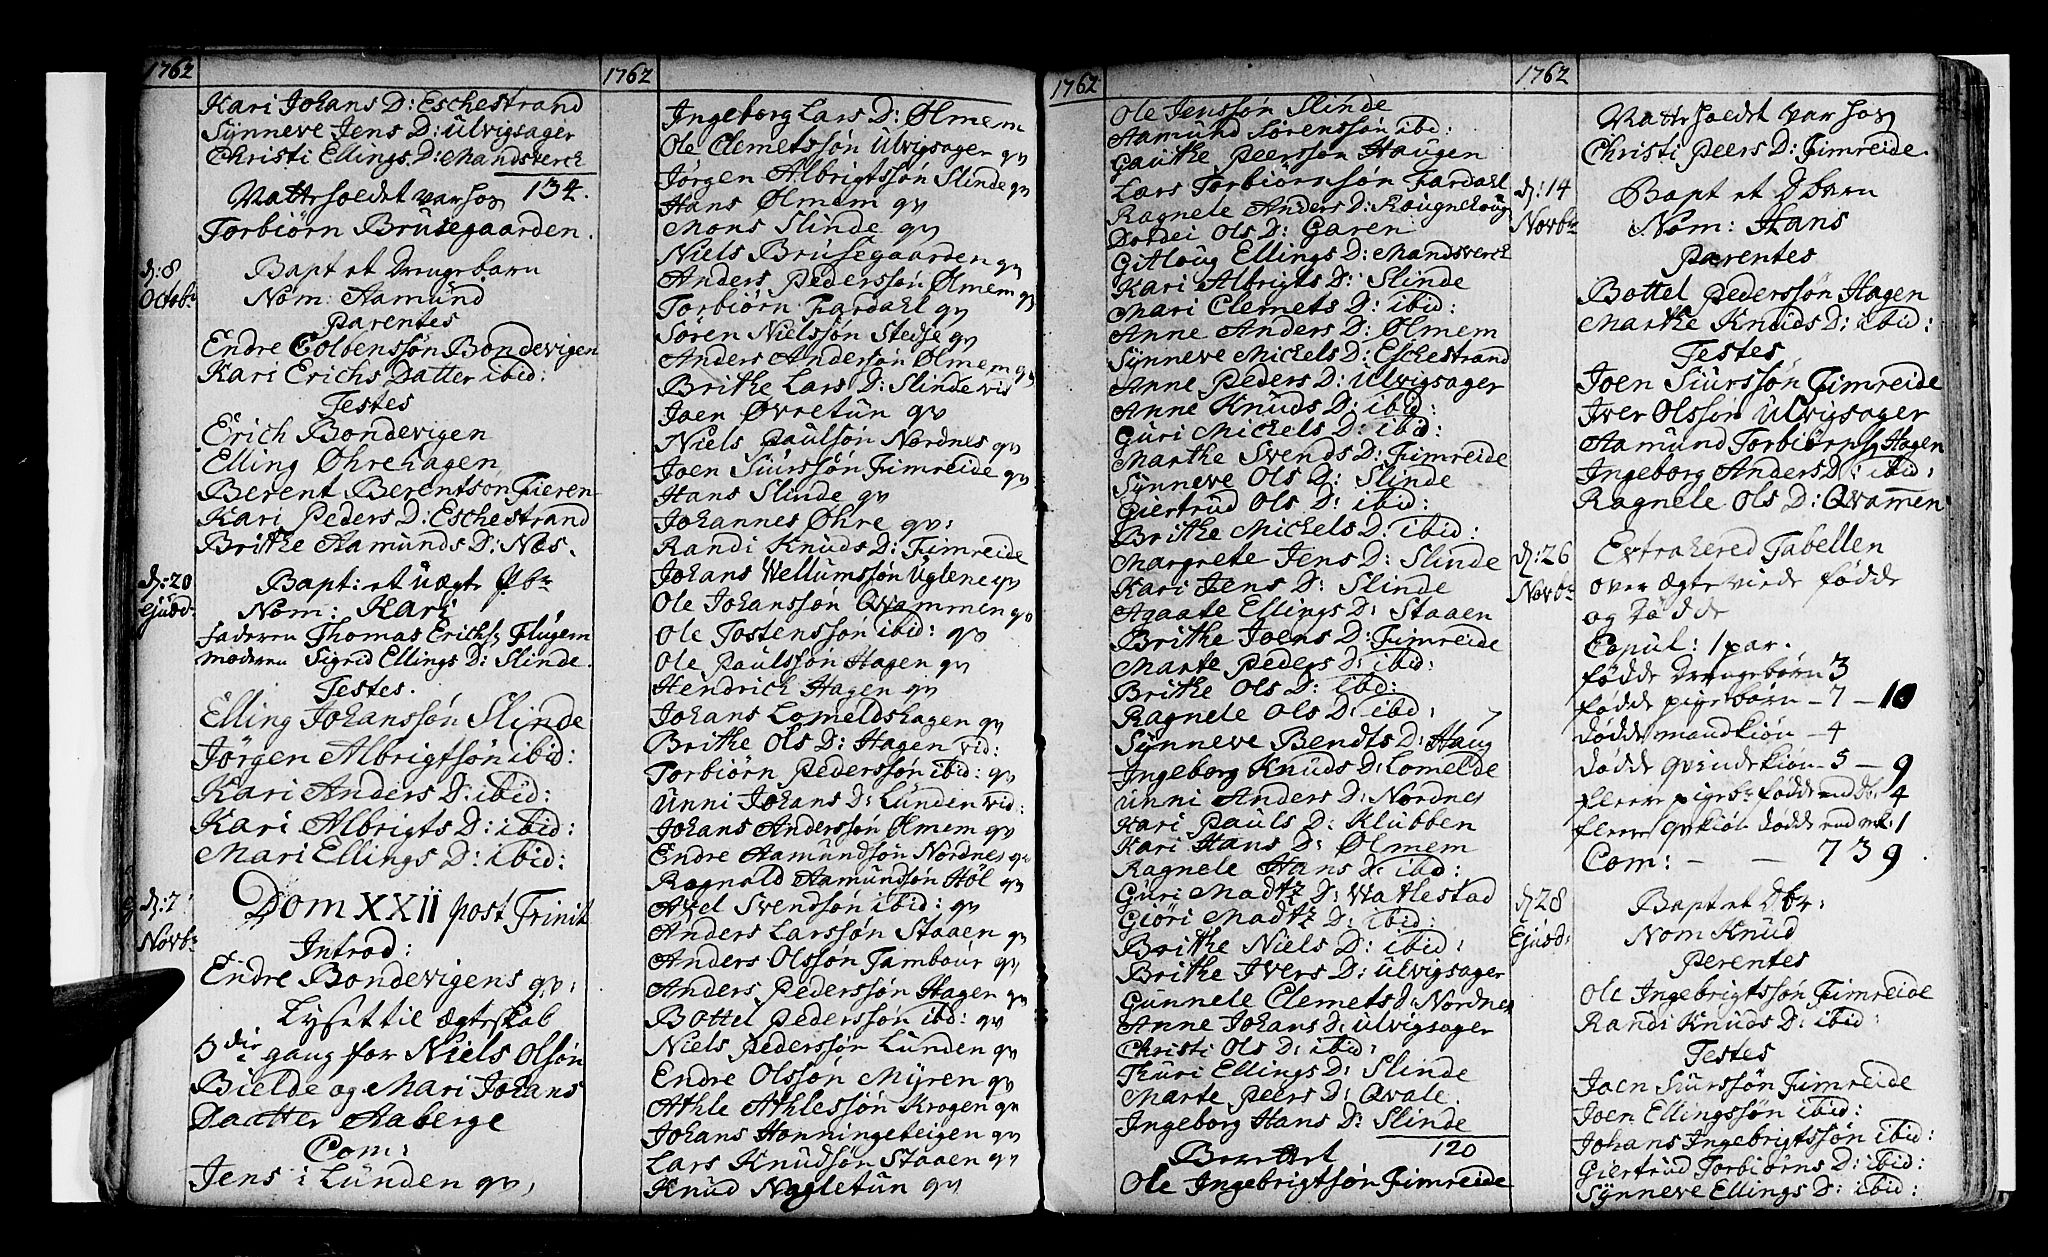 1762
Kari Johans D: Eschestrand
Synneve Jens D: Ulvigsager
Christi Ellings D: Mandsverck
134.
Torbiörn Brusegaarden.
d: 8 Octobr
Bapt et Drengebarn
Nom: Aamund
Parentes
Endre Colbenssön Bondevigen
Kari Erichs Datter ibid:
Testes
Erich Bondevigen
Elling Øhrehagen
Berent Berentson Fieren
Kari Peders D: Eschestrand
Brithe Aamunds D: Næs.
d: 20 Ejusd:
Bapt: et uægte
Nom: Kari
Faderen Thomas Erichs: Flugem
moderen Sigrid Ellings D: Slinde.
Testes.
Elling Johanssön Slinde
Jörgen Albrigtsön ibid:
Kari Anders D: ibid:
Kari Albrigts D: ibid:
Mari Ellings D: ibid:
d: 7 Novbr
Dom XXII post Trinit
Introd:
Endre Bondevigens qv:
Lyset til ægteskab
3die gang for Niels Olsön
Bielde og Mari Johans
Daatter Aaberge
Com:
Jens i Lunden qv,
1762
Ingeborg Lars D: Ølmem
Ole Clemetssön Ulvigsager qv
Jörgen Albrigtssön Slinde qv
Hans Ølmem qv
Mons Slinde qv
Niels Brusegaarden qv
Anders Pederssön Ølmem qv
Torbiörn Fardahl qv
Sören Nielssön Stedje qv
Anders Andersön Ølmem qv
Brithe Lars D: Slinde vis
Joen Øvretun qv
Niels Paulsön Nordnes qv
Joen Siurssön Fimreide qv
Hans Slinde qv
Johannes Øhre qv:
Randi Knuds D: Fimreide
Johans Wellumssön Uglene qv
Ole Johanssön Qvammen qv
Ole Tostenssön ibid: qv
Ole Paulssön Hagen qv
Hendrich Hagen qv
Johans Lomeldshagen qv
Brithe Ols D: Hagen vid:
Torbiörn Pederssön ibid: qv
Unni Johans D: Lunden vid:
Johans Anderssön Ølmem qv
Endre Aamundsön Nordnes qv
Ragnald Aamundsön Høl qv
Axel Svendsön ibid: qv
Anders Larssön Staaen qv
Anders Olsson Tambour qv
Anders Pederssön Hagen qv
Bottel Pederssön ibd: qv
Niels Pederssön Lunden qv
Endre Olssön Myren qv
Athle Athlessön Krogen qv
Johans Honningeteigen qv
Lars Knudsön Staaen qv
Knud Nagletun qv
1762
Ole Jenssön Slinde
Aamund Sörenssön ibid:
Gauthe Peerssön Haugen
Lars Torbiörnssön Fardahl
Ragnele Anders D: Raugnehoug
Dordei Ols D: Garen
Gitloug Ellings D: Mandsverck
Kari Albrigts D: Slinde
Mari Clemets D: ibid:
Anne Anders D: Ølmem
Synneve Michels D: Eschestrand
Anne Peders D: Ulvigsager
Anne Knuds D: ibid:
Guri Michels D: ibid:
Marthe Svends D: Fimreide
Synneve Ols D: Slinde
Giertrud Ols D: ibid:
Brithe Michels D: ibid:
Margrete Jens D: Slinde
Kari Jens D: Slinde
Agaate Ellings D: Staaen
Brithe Joens D: Fimreide
Marte Peders D: ibid:
Brithe Ols D: ibid:
Ragnele Ols D: ibid:
Synneve Bendts D: Haug
Ingeborg Knuds D: Lomelde
Unni Anders D: Nordnes
Kari Pauls D: Klubben
Kari Hans D: Ølmem
Ragnele Hans D: ibid:
Guri Madtz D: Wathestad
Giöri Madtz D: ibid:
Brithe Niels D: ibid:
Brithe Ivers D: Ulvigsager
Gunnele Clemets D: Nordnes
Anne Johans D: Ulvigsager
Christi Ols D: ibid:
Thuri Ellings D: Slinde
Marte Peers D: Qvale.
Ingeborg Hans D: Slinde
120
Berettet
Ole Ingebrigtsön Fimreide
1762
Christi Peers D: Fimreide.
d: 14 Novbr
Bapt et Dbarn
Nom: Hans
Parentes
Bottel Pederssön Hagen
Marthe Knuds D: ibid:
Testes
Joen Siurssön Fimreide
Iver Olssön Ulvigsager
Aamund Torbiörns: Hagen
Ingeborg Anders D: ibid:
Ragnele Ols D: Qvamen
d: 26 Novbr
Extrahered Tabellen
over ægteviede fødde
og dødde
Copul: 1 par.
fødde Drengebørn 3
fødde pigebørn - 7 - 10
dødde mandkiøn - 4
dødde qvindekiøn - 5 - 9
fleere pigeb: fødde end Db: 4
fleere qvkiøn dødde end mk: 1
Com: - - 739.
d 28 Ejusd:
Bapt et Dbr:
Nom Knud
Perentes
Ole Ingebrigtssön Fimreide
Randi Knuds D: ibid:
Testes
Joen Siurssön Fimreide
Joen Ellingssön ibid:
Johans Ingebrigtssön ibid:
Giertrud Torbiörns D: ibid:
Synneve Ellings D: ibid: